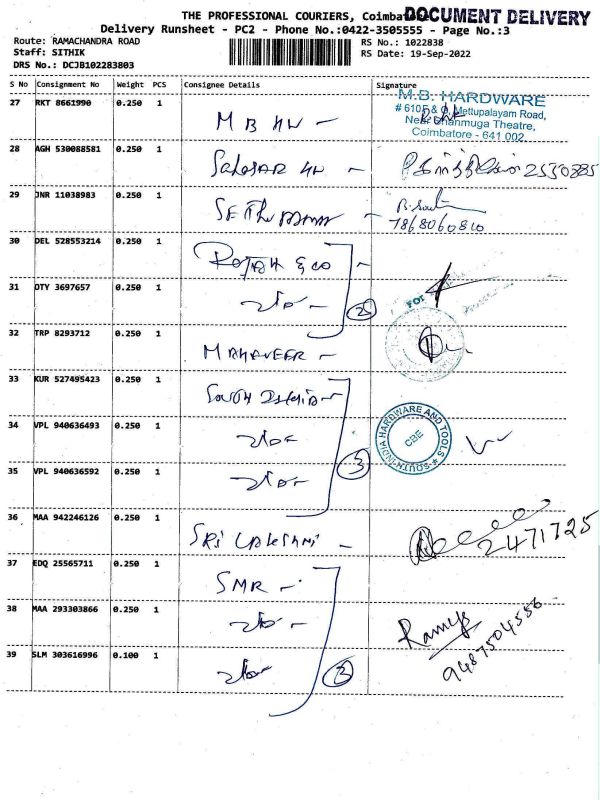 THE PROFESSIONAL COURIERS, Coimbatore
DOCUMENT DELIVERY
Delivery Runsheet - PC2 - Phone No.:0422-3505555 - Page No.:3
Route: RAMACHANDRA ROAD RS No.: 1022838
Staff: SITHIK RS Date: 19-Sep-2022
DRS No.: DCJB102283803
S No Consignment No Weight PCS Consignee Details Signature
27 RKT 8661990 0.250 1 M B HW -
M.B. HARDWARE
# 610F & G, Mettupalayam Road,
Near Shanmuga Theatre,
Coimbatore - 641 002.
28 AGH 530088581 0.250 1 HW - 2530885
29 JNR 11038983 0.250 1 -
7868060810
30 DEL 528553214 0.250 1 & CO -
31 OTY 3697657 0.250 1
FOR
32 TRP 8293712 0.250 1 MAHAVEER -
33 KUR 527495423 0.250 1 South India -
34 VPL 940636493 0.250 1
SOUTH INDIA HARDWARE AND TOOLS
CBE
35 VPL 940636592 0.250 1 3
36 MAA 942246126 0.250 1 SRi LAKSHMI - 2471725
37 EDQ 25565711 0.250 1 SMR -
38 MAA 293303866 0.250 1 Ramya
9487504556
39 SLM 303616996 0.100 1 3